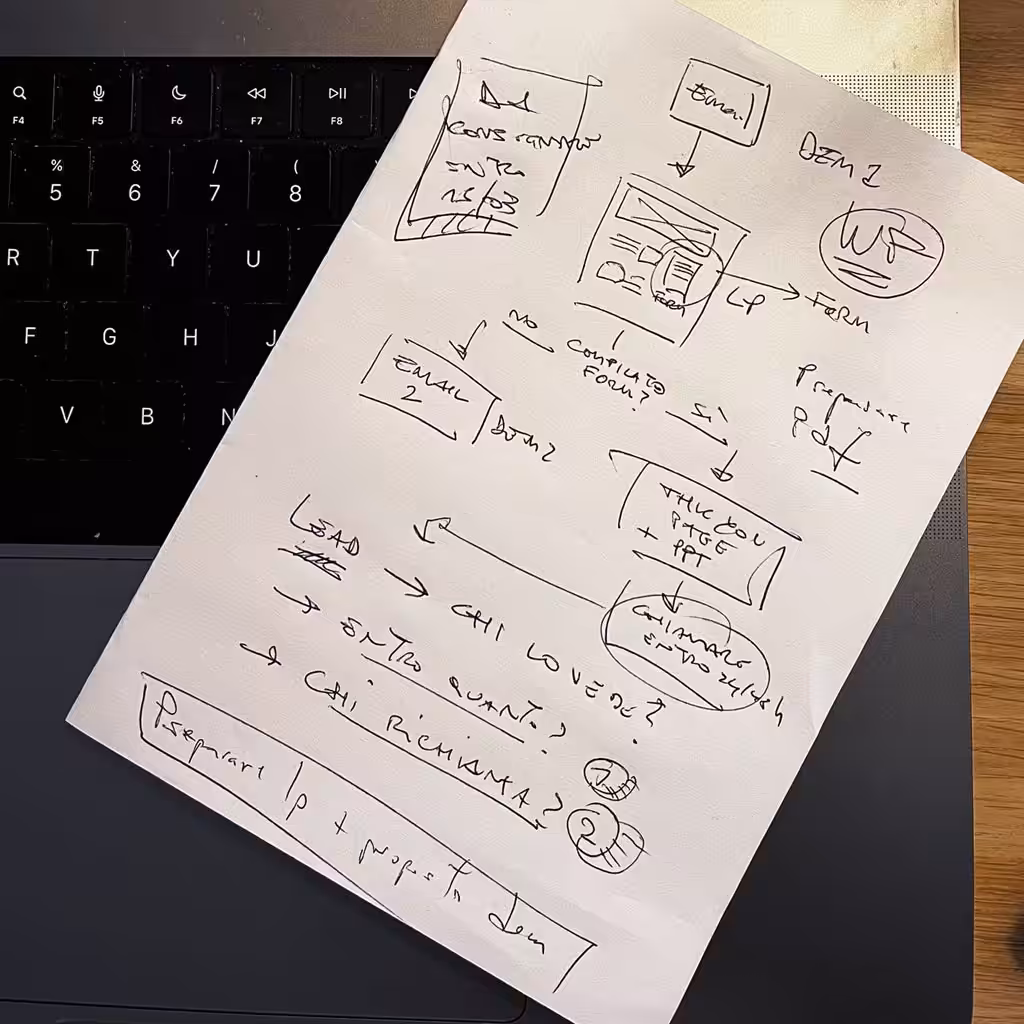 F4
F5
F6
F7
F8
%
5
&
6
/
7
(
8
R
T
Y
U
F
G
H
J
V
B
N
DA
CONSEGNARE
ENTRO
Email
DEM 1
WP
FORM
LP
FORM
NO
COMPILATO
FORM?
SÌ
EMAIL
2
DEM 2
Preparare
Pdf
THK YOU
PAGE
+ PPT
CHIAMARE
ENTRO 24/48h
LEAD
→ CHI LO VEDE?
→ ENTRO QUANTO?
→ CHI RICHIAMA?
1
2
Preparare lp + proposta dem